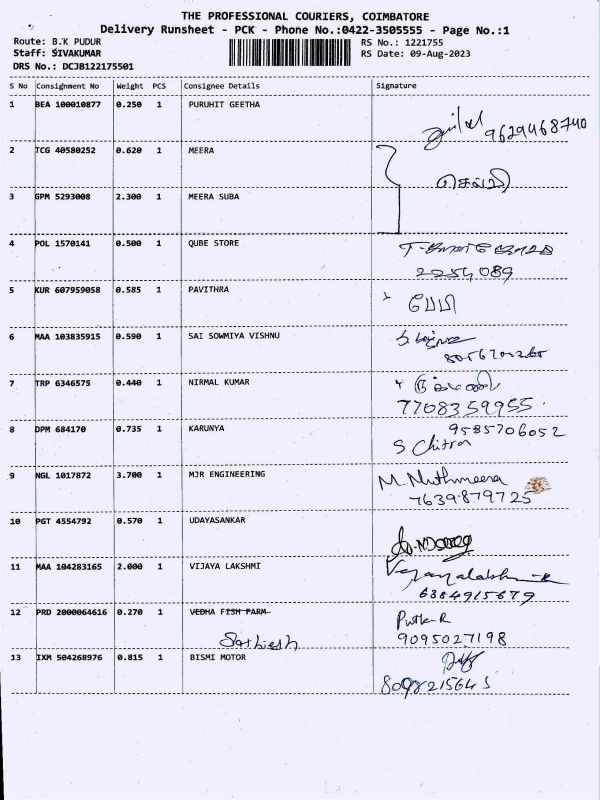 THE PROFESSIONAL COURIERS, COIMBATORE
Delivery Runsheet - PCK - Phone No.:0422-3505555 - Page No.:1
Route: B.K PUDUR RS No.: 1221755
Staff: SIVAKUMAR RS Date: 09-Aug-2023
DRS No.: DCJB122175501
S No Consignment No Weight PCS Consignee Details Signature
1 BEA 100010877 0.250 1 PURUHIT GEETHA
9629468740
2 TCG 40580252 0.620 1 MEERA
செல்வி
3 GPM 5293008 2.300 1 MEERA SUBA
4 POL 1570141 0.500 1 QUBE STORE
2254089
5 KUR 607959058 0.585 1 PAVITHRA
6 MAA 103835915 0.590 1 SAI SOWMIYA VISHNU
7 TRP 6346575 0.440 1 NIRMAL KUMAR
7708359955
8 DPM 684170 0.735 1 KARUNYA 9585706052
S Chitra
9 NGL 1017872 3.700 1 MJR ENGINEERING M. Muthmeena
7639879725
10 PGT 4554792 0.570 1 UDAYASANKAR
11 MAA 104283165 2.000 1 VIJAYA LAKSHMI
6384915679
12 PRD 2000064616 0.270 1 VEDHA FISH FARM
Sathiesh 9095027198
13 IXM 504268976 0.815 1 BISMI MOTOR
8098215645